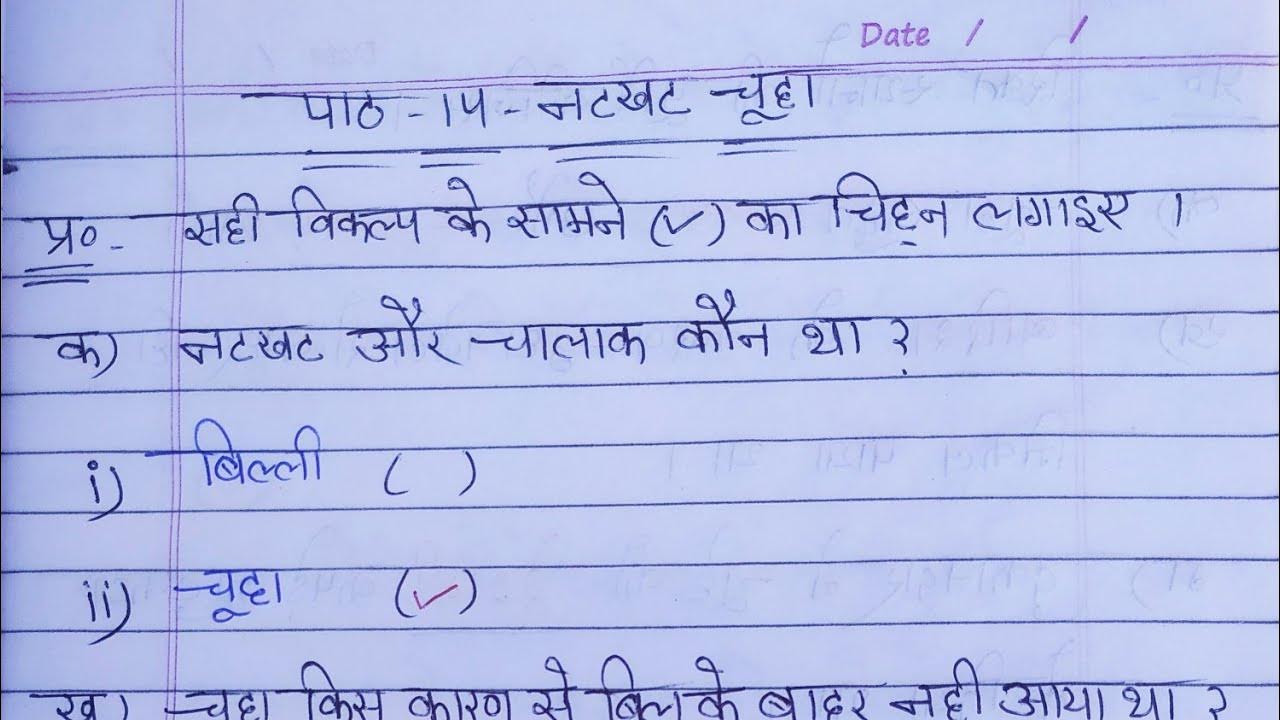 Date / /
पाठ - 14 - नटखट चूहा
प्र० - सही विकल्प के सामने (✓) का चिह्न लगाइए ।
क) नटखट और चालाक कौन था ?
i) बिल्ली ( )
ii) चूहा (✓)
ख) चूहा किस कारण से बिल के बाहर नही आया था ?